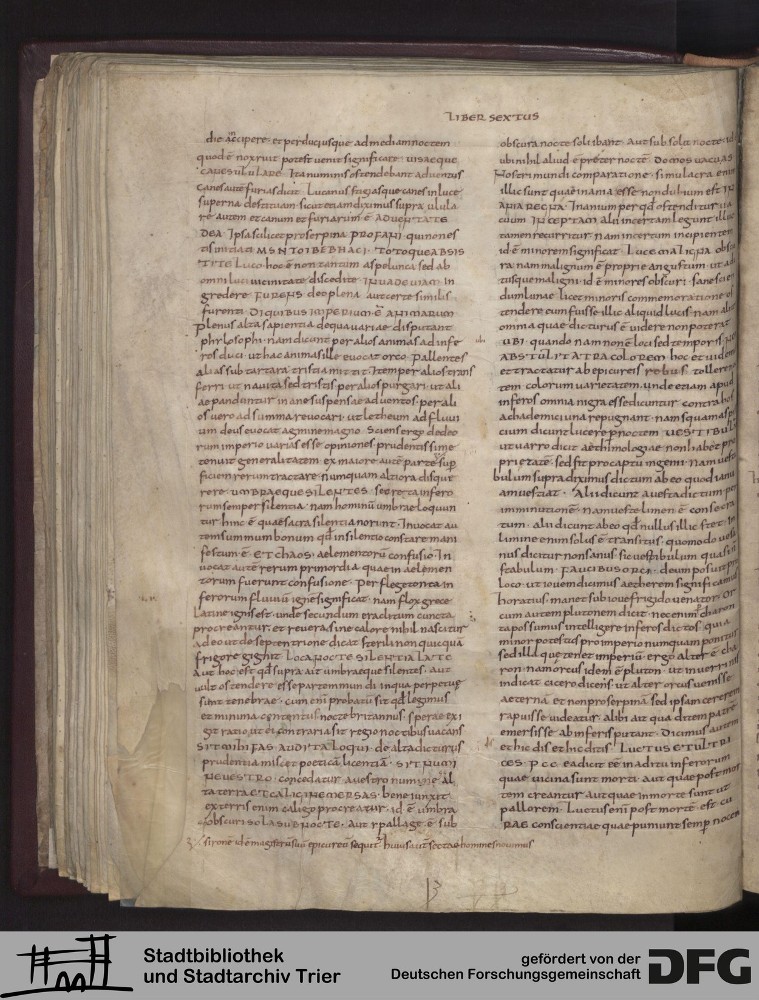 LIBER SEXTUS
die accipere et perduci usque ad mediam noctem
quod ē nox ruit potest venit significare visaeque
canes ululare Ita numinis ostendebant adventus
Canes autē furias dicit Lucanus stigiasque canes in luce
superna destituam sicut etiam diximus supra ulula
re autem et canum et furiarum ē ADVENTATE
DEA Ipsa scilicet proserpina PROFANI qui non es
tis initiati TOTOQUE ABSIS
TITE LUCO hoc ē non tantum a spelunca sed ab
omni luci vicinitate discedite INVADE VIAM in
gredere FURENS deo plena aut certe similis
furenti DI QUIBUS IMPERIUM Ē ANIMARUM
plenus alta sapientia de qua variae disputant
phylosophi nam dicunt per alios animas ad infe
ros duci ut hac animas ille evocat orco pallentes
alias sub tartara tristia mittit Item per alios trans
ferri ut navita sed tristis per alios purgari ut ali
ae panduntur inane suspensae ad ventos per ali
os vero ad summa revocari ut letheum ad fluvi
um deus evocat agmine magno Sciens ergo de deo
rum imperio varias esse opiniones prudentissime
tenuit generalitatem ex maiore autē parte
ficien rerum tractare numquam altiora disqui
rere UMBRAEQUE SILENTES secreta infero
rum semper silentia nam hominū umbrae loquun
tur hinc ē quae sacra silentia norunt Invocat au
tem summum bonum qd in silentio constare mani
festum ē ET CHAOS aelementorū confusio In
vocat autē rerum primordia quae in aelemen
torum fuerunt confusione Per flegetonta in
ferorum fluviū ignē significat nam flox grece
latine ignis est unde secundum eraclitum cuncta
procreantur et revera sine calore nihil nascitur
adeo ut de septentrione dicat sterili non quicquā
frigore gignit LOCA NOCTE SILENTIA LATE
Aut hoc est qd supra ait umbraeque silentes aut
vult ostendere esse partem mundi in qua perpetuę
sunt tenebrae cum enī probatū sit qd legimus
et minima contentus nocte britannus
git ratio ut e contraria sit regio noctibus vacans
SIT MIHI FAS AUDITA LOQUI de alta dicturus
prudentia miscet poetica licentiā SIT NUMI
NE VESTRO concedatur a vestro numine
TA TERRA ET CALIGINE MERSAS bene iunxit
ex terris enim caligo procreatur id ē umbra
OBSCURI SOLA SUB NOCTE Aut ypallage ē sub
obscura nocte soli ibant Aut sub sola nocte id
ubi nihil aliud ē prēter noctē DOMOS VACUAS
Nostri mundi comparatione simulacra enim
illic sunt quae inania esse non dubium est IN
ANIA REGNA Inanium per qd ostenditur va
cuum INCEPTAM alii incertam legunt illic
tamen recurritur nam incertum incipientem
id ē minorem significat LUCE MALIGNA obscu
ra nam malignum ē proprie angustum ut adi
tusque maligni id ē minores obscuri sane scien
dum lunae licet minoris commemoratione os
tendere eum fuisse illic aliquid lucis nam alit
omnia quae dicturus ē videre non poterat
UBI quando nam non ē loci sed temporis
ABSTULIT ATRA COLOREM hoc et vidēm
et tractatur ab epicureis rebus tollere noc
tem colorum varietatem unde etiam apud
inferos omnia nigra esse dicuntur contra hos
achademici una repugnant nam squamas pis
cium dicunt lucere p noctem VESTIBULŪ
ut varro dicit aethimologiae non habet pro
prietatē sed fit pro captu ingenii nam vesti
bulum supra diximus dictum ab eo quod ianu
am vestiat Alii dicunt a vesta dictum per
imminutionē nam veste limen ē consecra
tum alii dicunt ab eo qd nullus illic stet In
limine enim solus ē transitus quomodo vesa
nus dicitur non sanus sic vestibulum quasi n̄
stabulum FAUCIBUS ORCI deum posuit pro
loco ut iovem dicimus aetherem significantes
horatius manet sub iove frigido venator Or
cum autem plutonem dicit nec enim charon
ta possumus intelligere inferos dictos quia
minor potestas pro imperio numquam ponitur
sed illa que tenet imperiū ergo alter ē cha
ron nam orcus idem ē pluton ut in verrinis
indicat cicero dicens ut alter orcus venisse
aeternā et non proserpinā sed ipsam cererem
rapuisse videatur alibi ait qua ditem patrē
emersisse ab inferis putant Dicimus autem
et hic dis et hic ditis LUCTUS ET ULTRI
CES P C C ea dicit eē in aditu inferorum
quae vicina sunt morti aut quae post mor
tem creantur aut quae in morte sunt ut
pallorem Luctus enī post mortē est cu
RAE conscientiae quae puniunt semp nocen
sirone id ē magistrū suū epicureū sequit huius autē sectae homines novimus
13
Stadtbibliothek
und Stadtarchiv Trier
gefördert von der
Deutschen Forschungsgemeinschaft
DFG